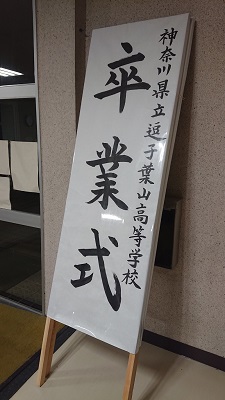 神奈川県立逗子葉山高等学校
卒業式